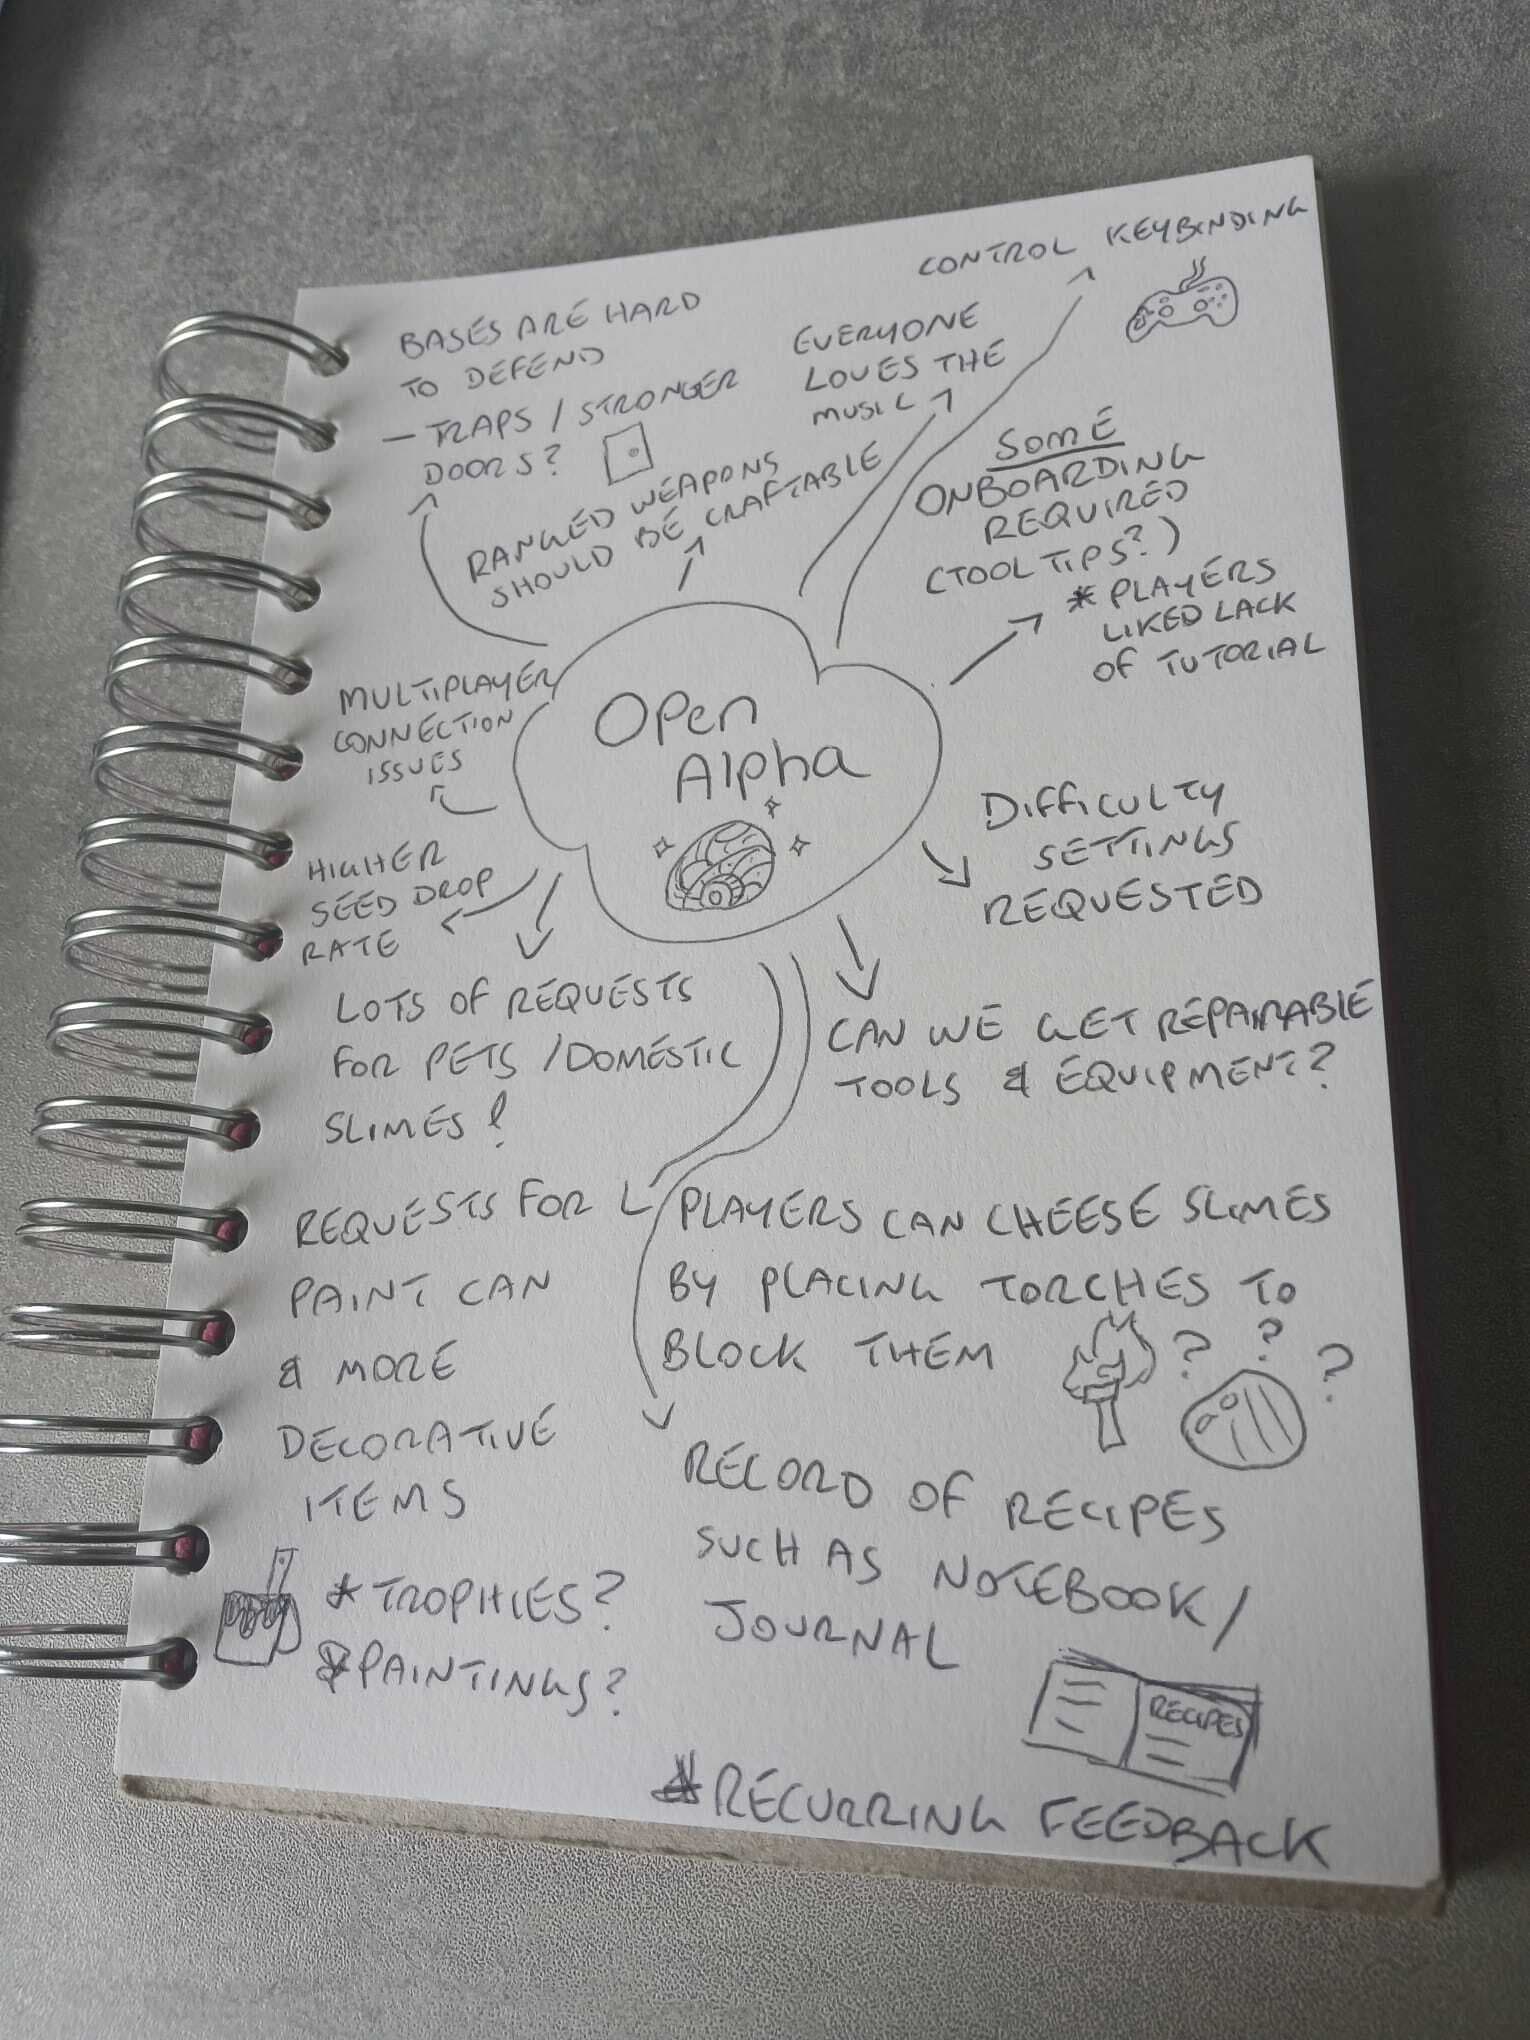 CONTROL KEYBINDING
BASES ARE HARD
TO DEFEND
- TRAPS / STRONGER
DOORS?
EVERYONE
LOVES THE
MUSIC
RANGED WEAPONS
SHOULD BE CRAFTABLE
SOME
ONBOARDING
REQUIRED
(TOOL TIPS?)
* PLAYERS
LIKED LACK
OF TUTORIAL
MULTIPLAYER
CONNECTION
ISSUES
Open
Alpha
DIFFICULTY
SETTINGS
REQUESTED
HIGHER
SEED DROP
RATE
LOTS OF REQUESTS
FOR PETS / DOMESTIC
SLIMES!
CAN WE GET REPAIRABLE
TOOLS & EQUIPMENT?
REQUESTS FOR
PAINT CAN
& MORE
DECORATIVE
ITEMS
* TROPHIES?
* PAINTINGS?
PLAYERS CAN CHEESE SLIMES
BY PLACING TORCHES TO
BLOCK THEM
? ? ?
RECORD OF RECIPES
SUCH AS NOTEBOOK /
JOURNAL
RECIPES
# RECURRING FEEDBACK